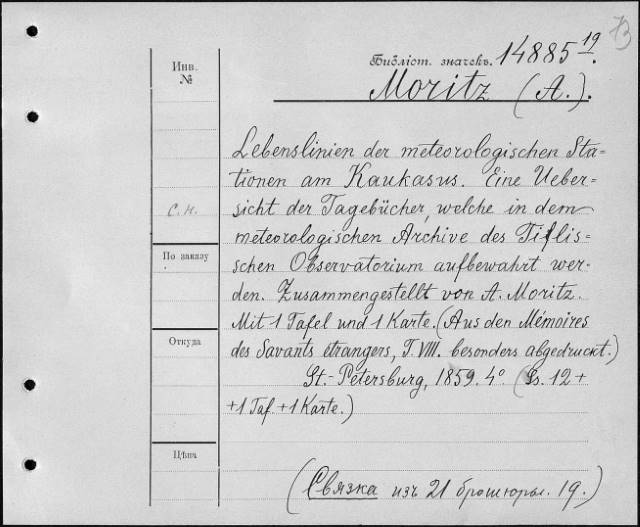 73
Инв.
№
Библіот. значекъ. 14885 19.
Moritz (A.).
Lebenslinien der meteorologischen Sta-
tionen am Kaukasus. Eine Ueber-
sicht der Tagebücher, welche in dem
С. Н.
meteorologischen Archive des Tiflis-
По заказу
schen Observatorium aufbewahrt wer-
den. Zusammengestellt von A. Moritz.
Mit 1 Tafel und 1 Karte. (Aus den Mémoires
Откуда
des Savants étrangers, T. VIII. besonders abgedruckt.)
St.-Petersburg, 1859. 4° (Ss. 12 +
+ 1 Taf. + 1 Karte.)
Цѣна
(Связка изъ 21 брошюры. 19.)